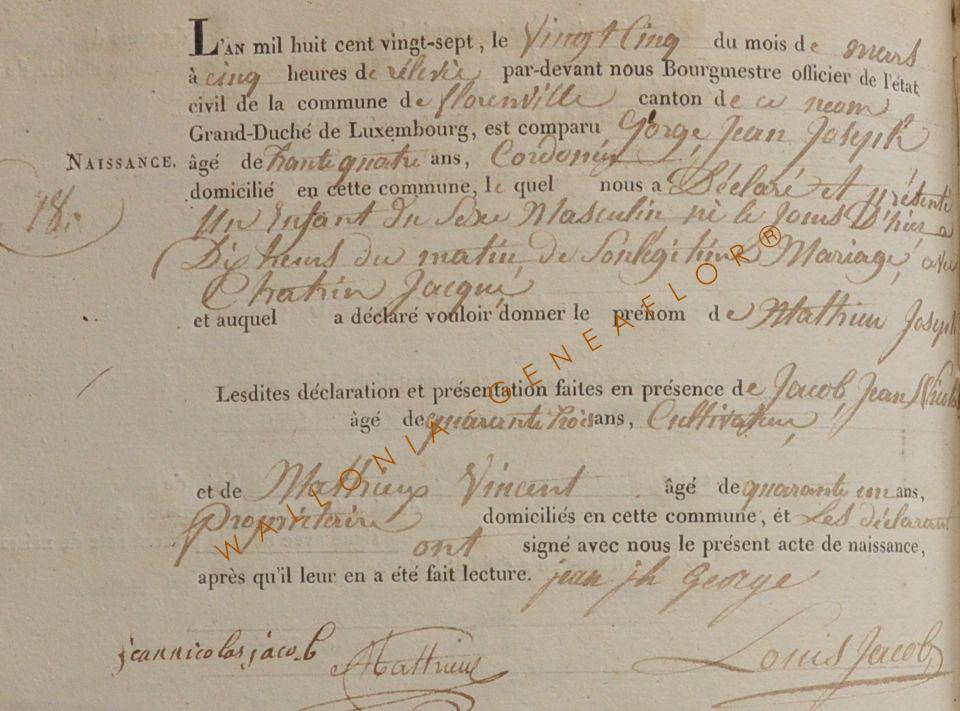 L'AN mil huit cent vingt-sept, le Vingt Cinq du mois de mars
à cinq heures de rélevée par-devant nous Bourgmestre officier de l'état
civil de la commune de florenville canton de ce nom
Grand-Duché de Luxembourg, est comparu Gorge, Jean Joseph
NAISSANCE. âgé de trante quatre ans, Cordonier
domicilié en cette commune, le quel nous a Déclaré et présenté
18.
Un Enfant du Sexe Masculin né le Jours D'hier a
Dix heurs du matin de Son légitime Mariage, avec
Chatin Jacqué
et auquel a déclaré vouloir donner le prénom de Mathieu Joseph
Lesdites déclaration et présentation faites en présence de Jacob, Jean Nicolas
âgé de quarante trois ans, Cultivateur,
et de Mathieu Vincent âgé de quarante un ans,
propriétaire domiciliés en cette commune, et Les déclarant
ont signé avec nous le présent acte de naissance,
après qu'il leur en a été fait lecture. jean jh George
jeannicolas jacob Mathieu Louis Jacob
WALLONIA GENEAFLOR®